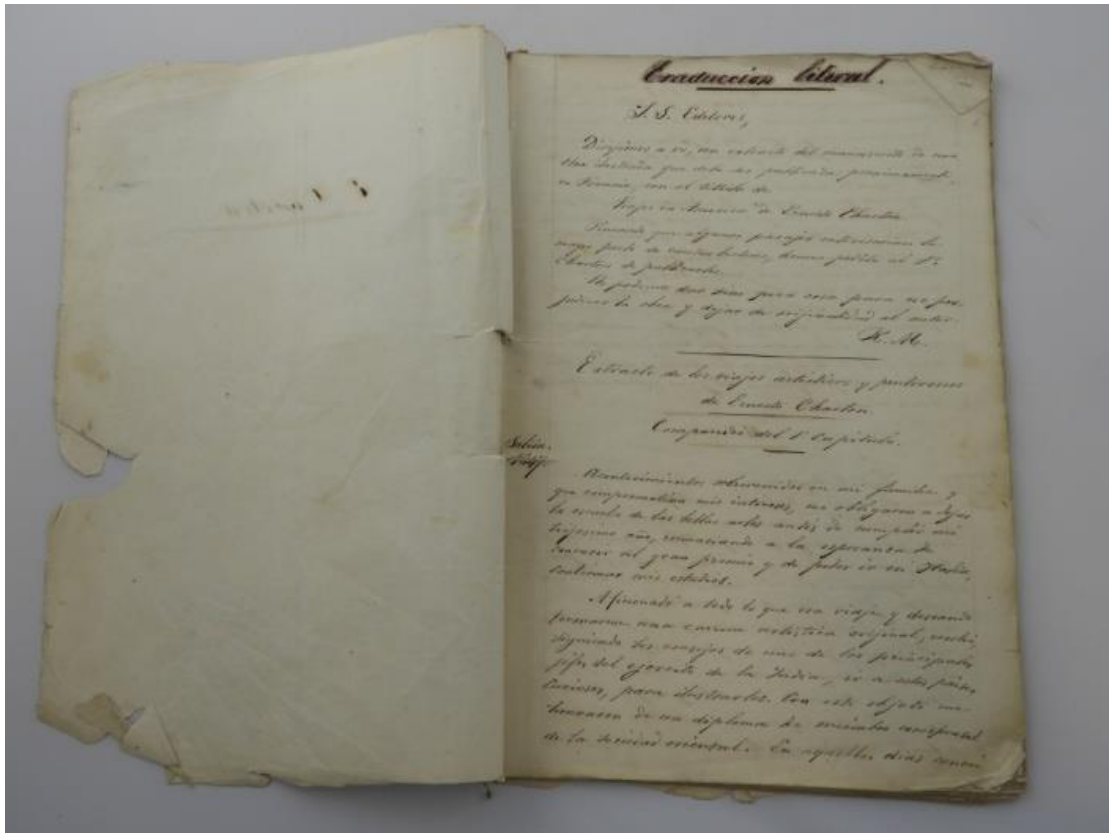 Traduccion literal.
S. S. Editores,
Dirijimos a Vd, un extracto del manuscrito de una
obra que debe ser publicada proximamente
en Francia, con el titulo de
Viaje en America de Ernesto Charton
que algunos pasajes interesarian la
mayor parte de lectores, hemos pedido al Sr.
Charton de publicarlos.
dos dias para para no per-
judicar la obra y dejar de orijinalidad al autor.
R. M.
Extracto de los viajes artisticos y pintorescos
de Ernesto Charton.
Compendio del 1º Capitulo.
Acontecimientos sobrevenidos en mi familia y
que comprometian mis intereses, me obligaron a dejar
la escuela de las bellas artes antes de cumplir mi
trijesimo año, renunciando a la esperanza de
del gran premio y de poder ir en Italia,
continuar mis estudios.
Aficionado a todo lo que era viaje y deseando
formarme una carrera artistica orijinal,
siguiendo los consejos de uno de los principales
jefes del ejercito de la India, ir a estos paises
curiosos, para ilustrarlos. Con este objeto me
de un diploma de miembro corresponsal
de la sociedad oriental. En aquellos dias